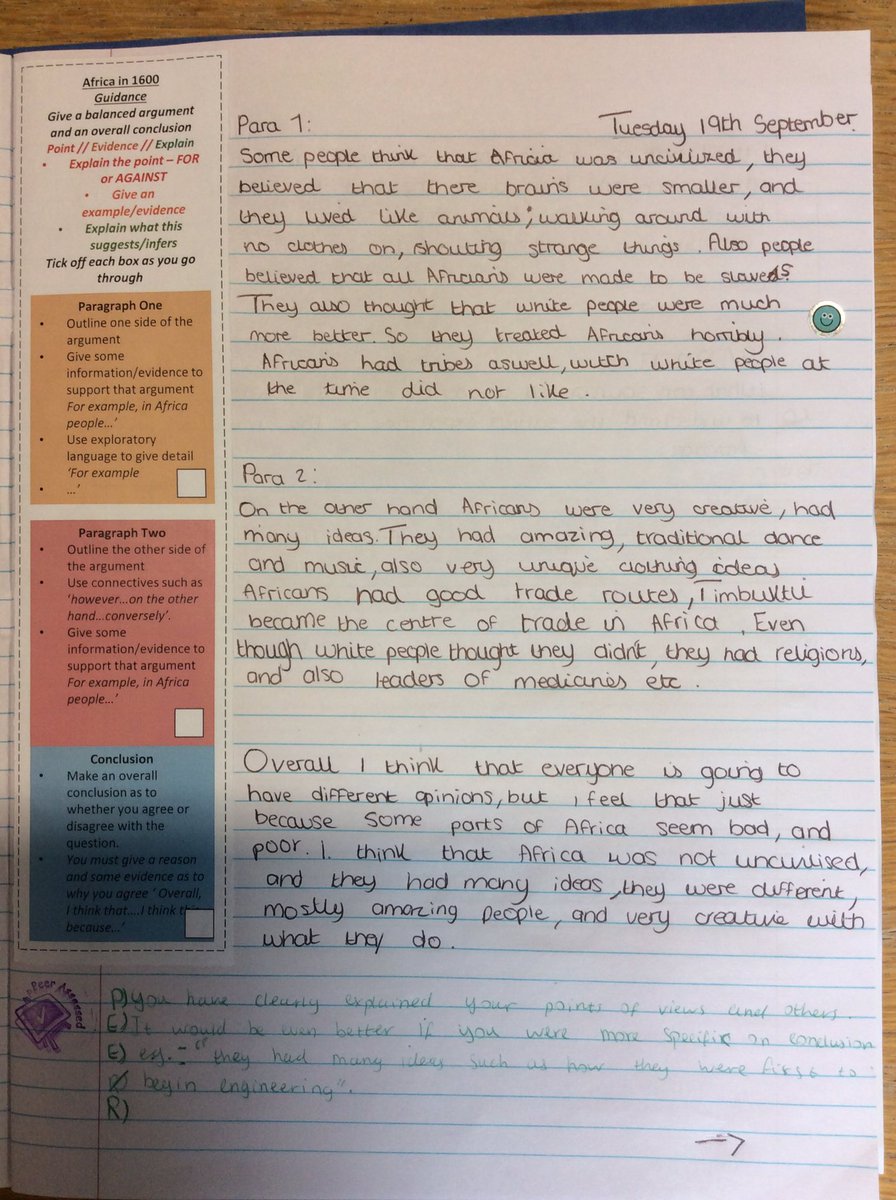 Africa in 1600
Guidance
Give a balanced argument
and an overall conclusion
Point // Evidence // Explain
• Explain the point – FOR
or AGAINST
• Give an
example/evidence
• Explain what this
suggests/infers
Tick off each box as you go
through
Paragraph One
• Outline one side of the
argument
• Give some
information/evidence to
support that argument
For example, in Africa
people…’
• Use exploratory
language to give detail
‘For example
• …’
Paragraph Two
• Outline the other side of
the argument
• Use connectives such as
‘however…on the other
hand…conversely’.
• Give some
information/evidence to
support that argument
For example, in Africa
people…’
Conclusion
• Make an overall
conclusion as to
whether you agree or
disagree with the
question.
• You must give a reason
and some evidence as to
why you agree ‘ Overall,
I think that….I think this
because…’
Para 1:
Tuesday 19th September.
Some people think that Africia was uncivilized, they
believed that there brains were smaller, and
they lived like animals; walking around with
no clothes on, shouting strange things. Also people
believed that all Africians were made to be slaves.
They also thought that white people were much
more better. So they treated Africans horribly.
Africans had tribes aswell, witch white people at
the time did not like.
Para 2:
On the other hand Africans were very creative, had
many ideas. They had amazing, traditional dance
and music, also very unique clothing ideas
Africans had good trade routes, Timbuktu
became the centre of trade in Africa. Even
though white people thought they didn't, they had religions,
and also leaders of medicanes etc.
Overall I think that everyone is going to
have different opinions, but i feel that just
because some parts of Africa seem bad, and
poor. I think that Africa was not uncivilised,
and they had many ideas, they were different,
mostly amazing people, and very creative with
what they do.
Peer Assessed
P) you have clearly explained your points of views and others.
E) It would be even better if you were more specific on conclusion
E) eg. - "they had many ideas such as how they were first to
begin engineering".
R)